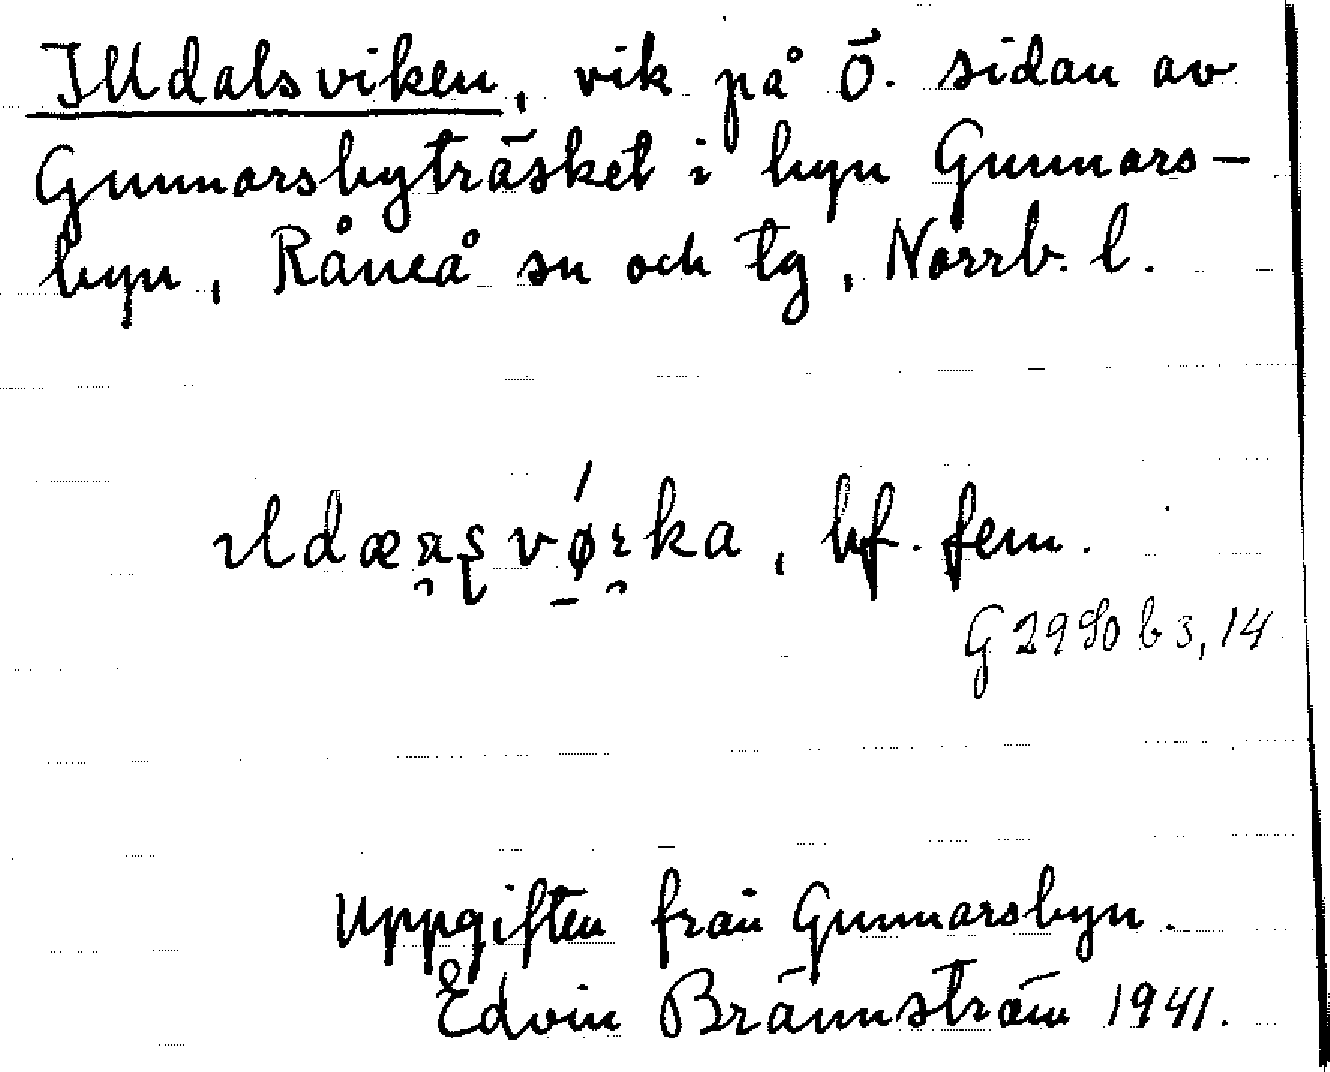 Illdalsviken, vik på Ö. sidan av
Gunnarsbyträsket i byn Gunnars-
byn, Råneå sn och tg, Norrb. l.
bf. fem.
G 2990 b 3, 14
Uppgiften från Gunnarsbyn.
Edvin Brännström 1941.